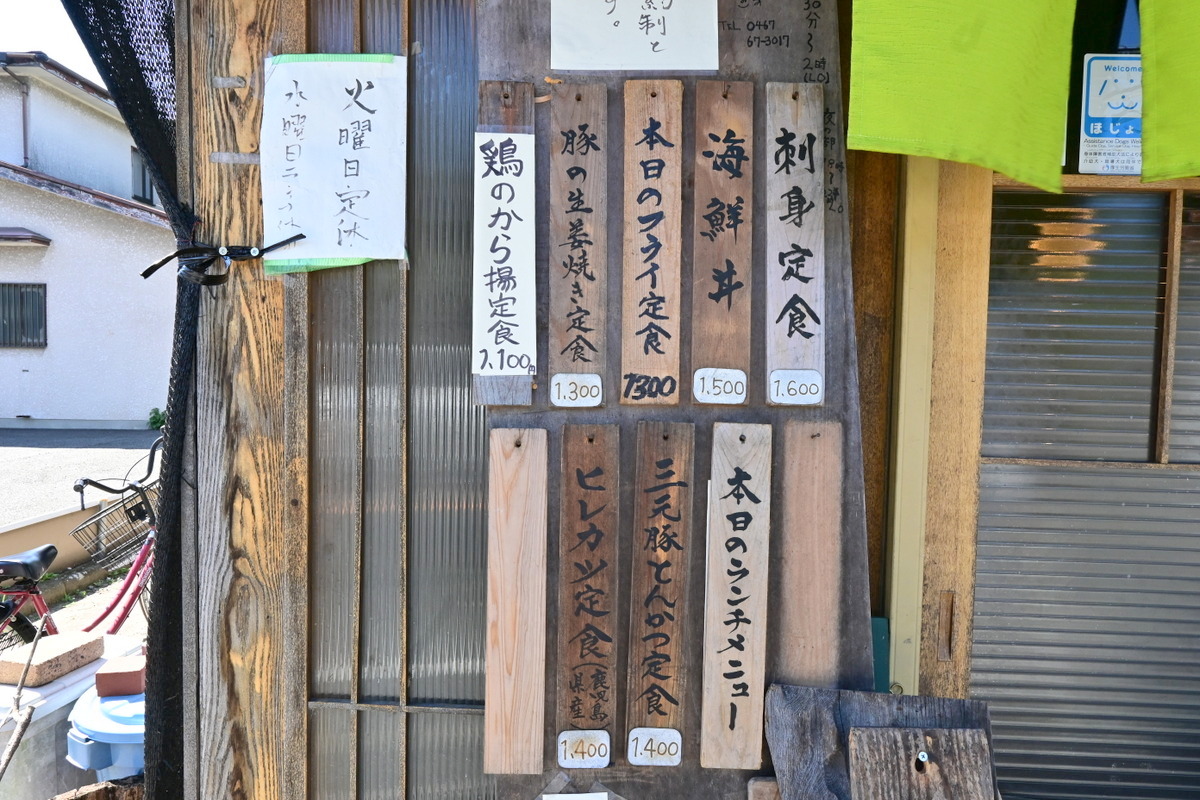 約制と
す。
TEL 0467
67-3017
30分〜
2時
(L.O)
刺身定食
1.600
海鮮丼
1.500
本日のフライ定食
1300
豚の生姜焼き定食
1.300
鶏のから揚定食
1.100円
本日のランチメニュー
三元豚とんかつ定食
1.400
ヒレカツ定食(鹿児島県産)
1.400
火曜日定休
水曜日
Welcome
ほじょ
Assistance Dogs Wel